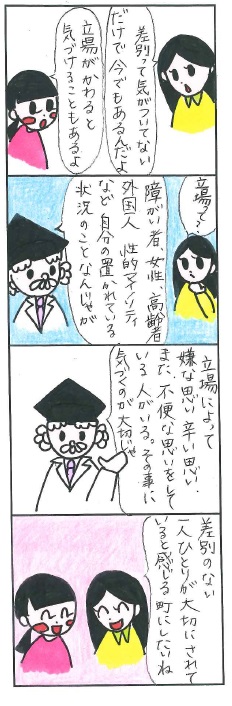 差別って気がついてない
だけで今でもあるんだよ
立場がかわると
気づけることもあるよ
立場で?
障がい者、女性、高齢者
外国人 性的マイノリティ
など 自分の置かれている
状況のことなんじゃが
立場によって
嫌な思い 辛い思い、
また、不便な思いをして
いる人がいる。その事に
気づくのが大切じゃ
差別のない
一人ひとりが大切にされて
いると感じる町にしたいね